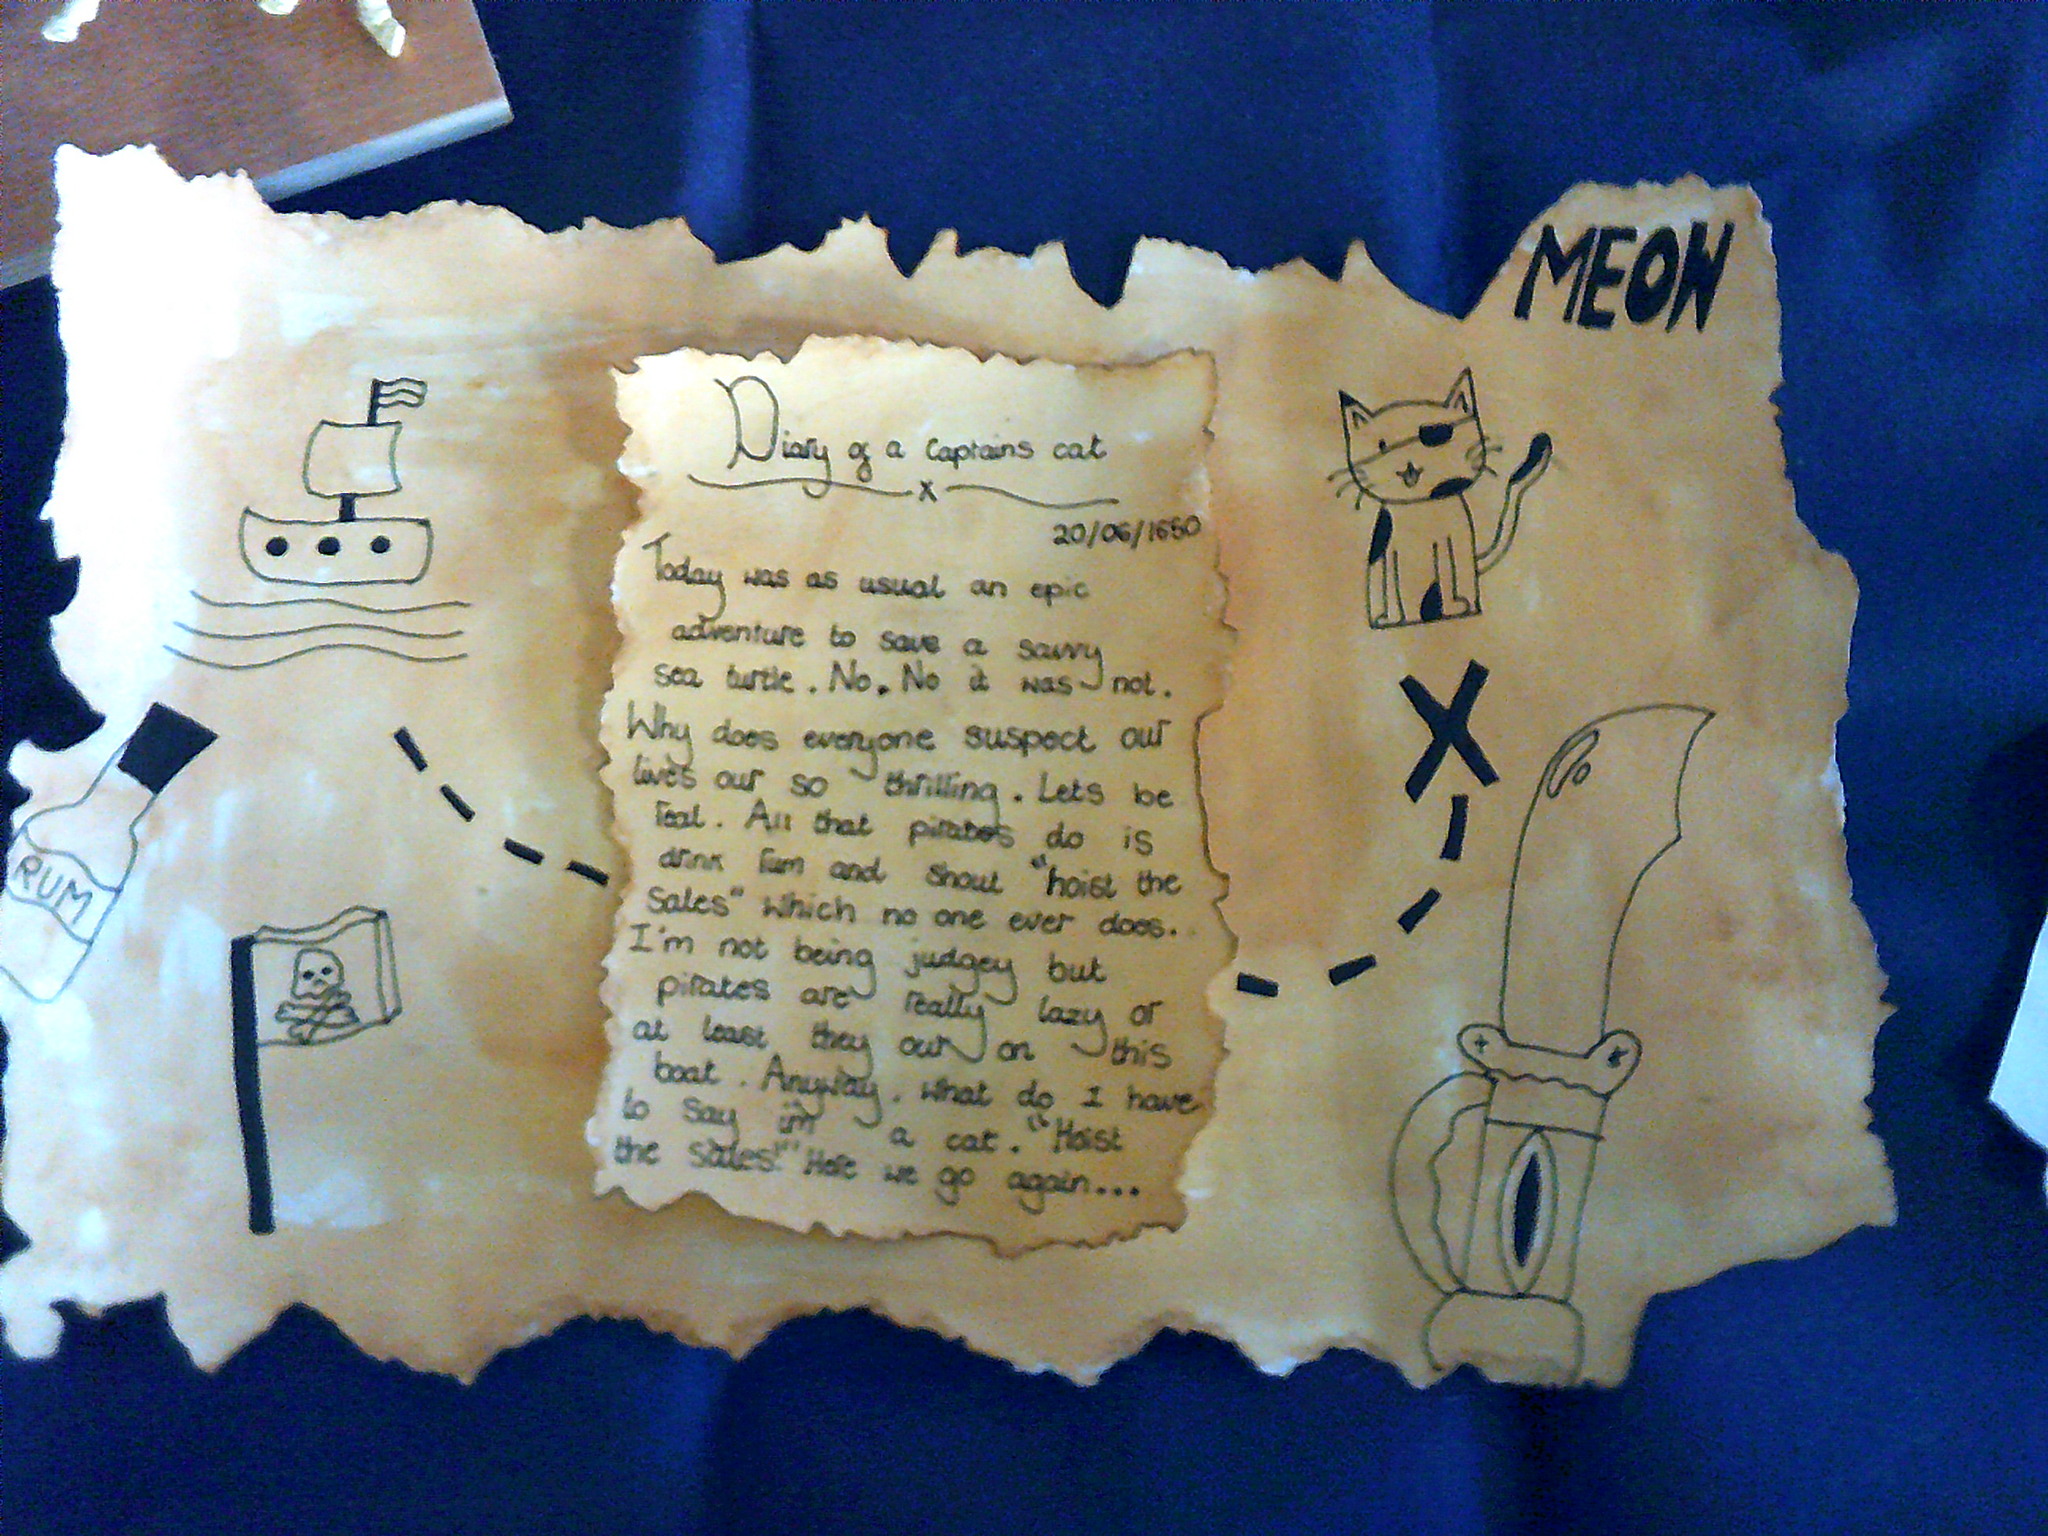 MEOW
Diary of a Captains cat
x
20/06/1650
Today was as usual an epic
adventure to save a savvy
sea turtle. No. No it was not.
Why does everyone suspect our
lives our so thrilling. Lets be
real. All that pirates do is
drink rum and shout "hoist the
sales" which no one ever does.
I'm not being judgey but
pirates are really lazy or
at least they our on this
boat. Anyway. What do I have
to say im a cat. "Hoist
the sales!" Here we go again...
RUM